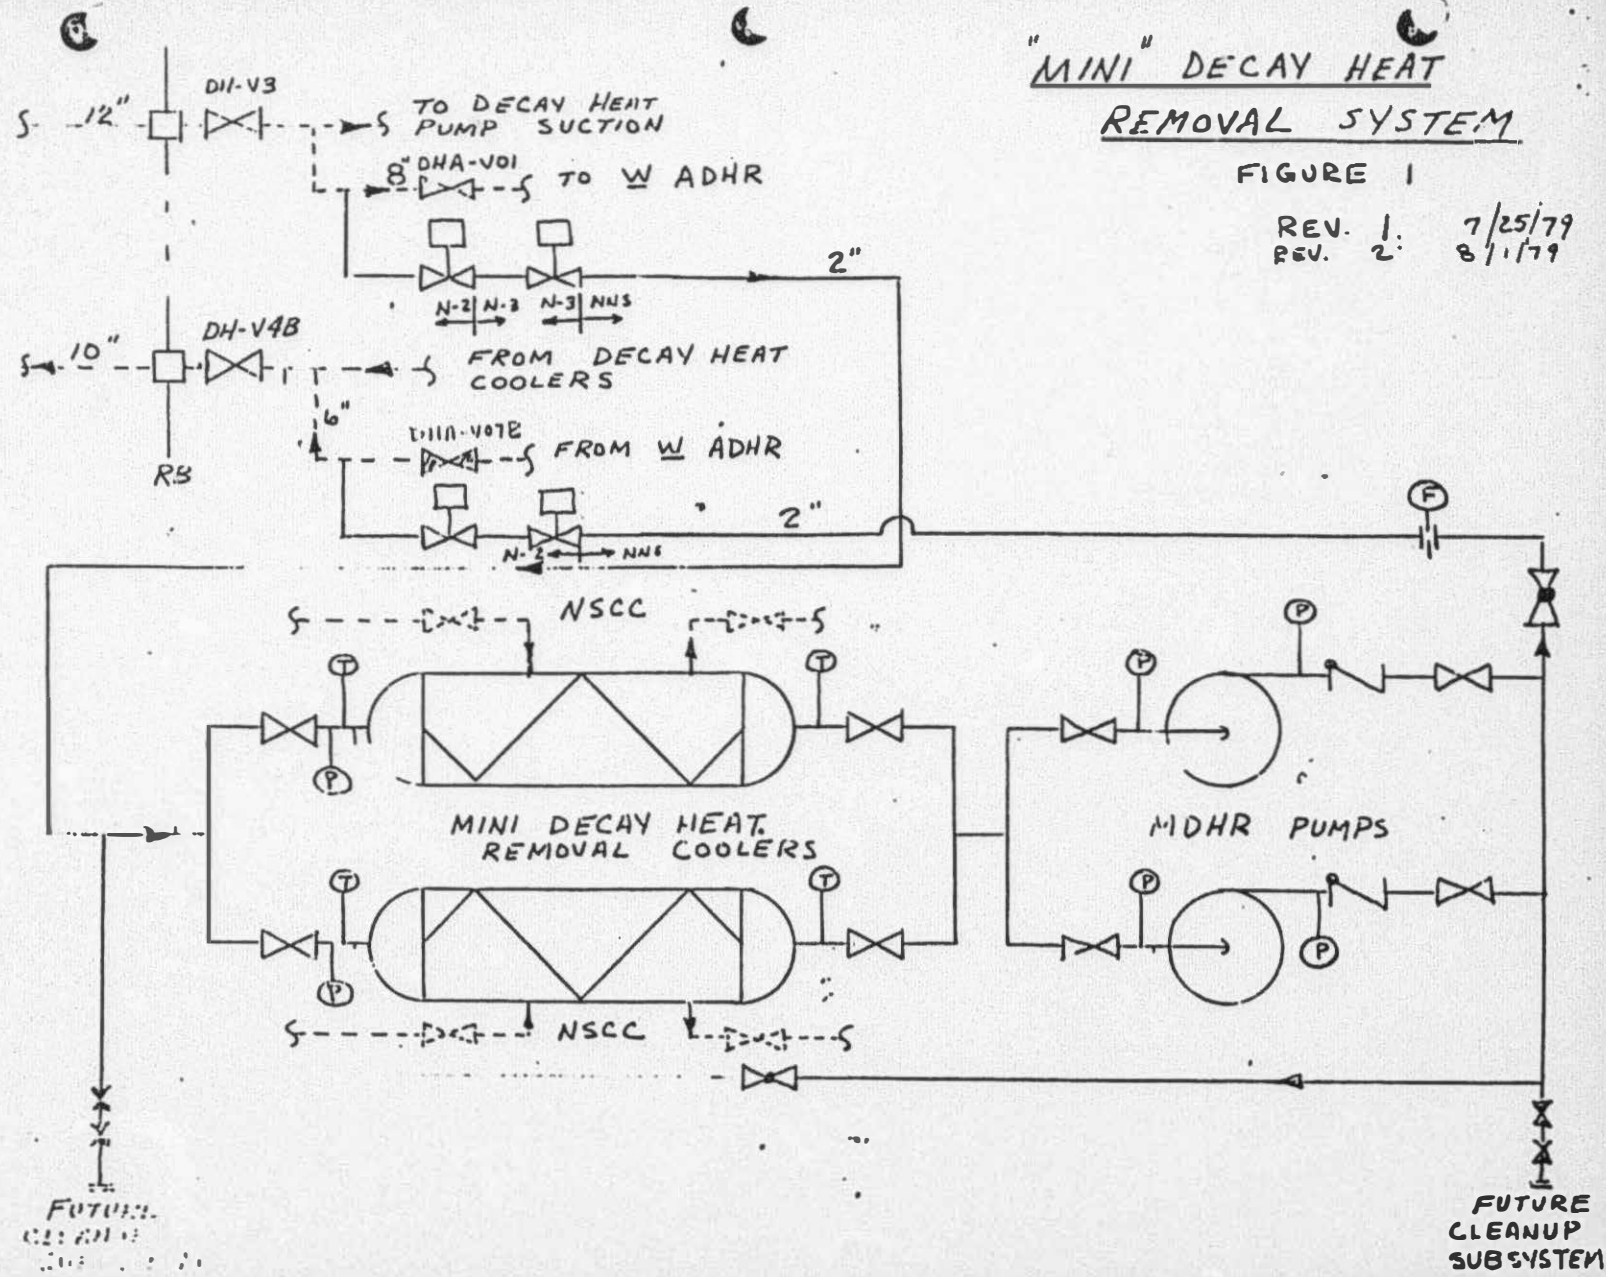 "MINI" DECAY HEAT
REMOVAL SYSTEM
FIGURE 1
REV. 1. 7/25/79
REV. 2. 8/1/79
12"
DH-V3
TO DECAY HEAT
PUMP SUCTION
8" DHA-V01
TO W ADHR
2"
N-2 N-3
N-3 NNS
10"
DH-V4B
FROM DECAY HEAT
COOLERS
6"
FROM W ADHR
RB
2"
N-2
NNS
F
NSCC
T
T
P
P
P
MINI DECAY HEAT
REMOVAL COOLERS
MDHR PUMPS
T
T
P
P
P
NSCC
FUTURE
FUTURE
CLEANUP
SUBSYSTEM